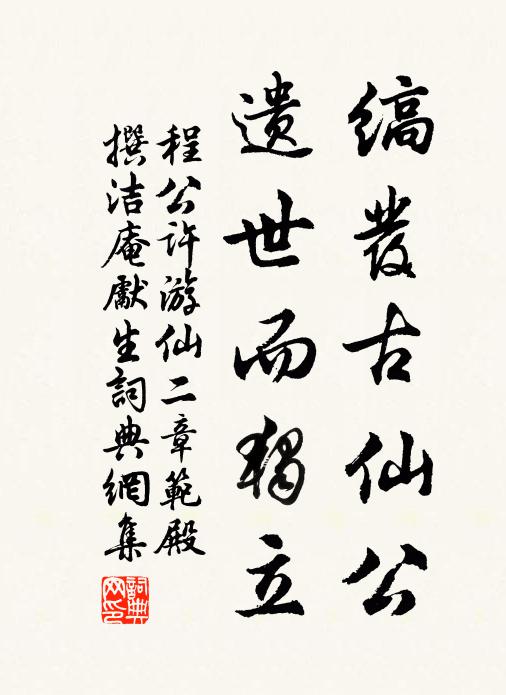 縞發古仙公
遺世而獨立
程公許游仙二章範殿
撰洁庵獻生詞典網集
詞典网印